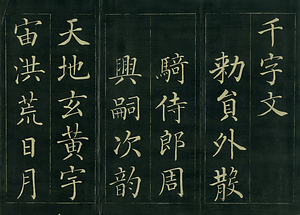 千字文
勑貟外散
騎侍郎周
興嗣次韵
天地玄黃宇
宙洪荒日月